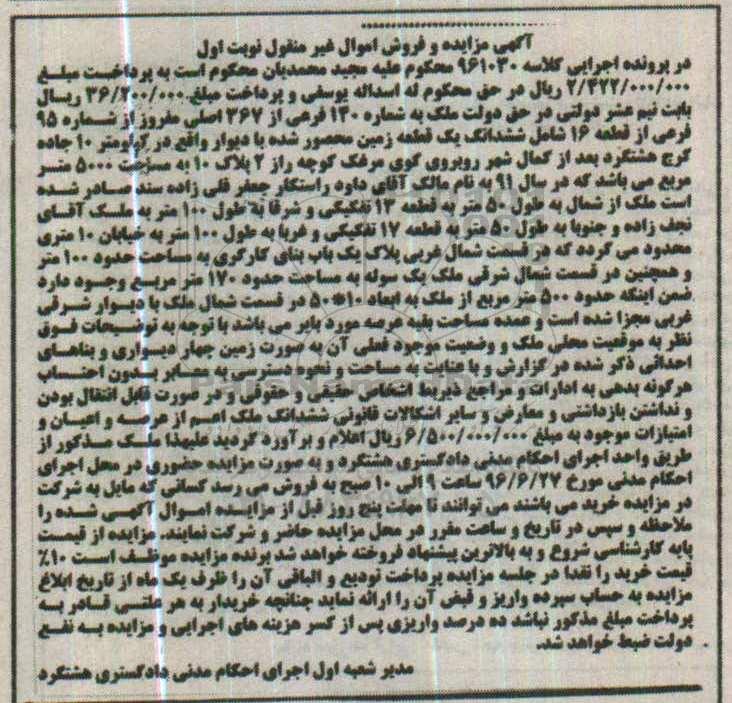 آگهی مزایده و فروش اموال غیر منقول نوبت اول
در پرونده اجرایی کلاسه ۹۶۱۰۳۰ محکوم علیه مجید محمدیان محکوم است به پرداخت مبلغ
۲/۴۲۲/۰۰۰/۰۰۰ ریال در حق محکوم له اسداله یوسفی و پرداخت مبلغ ۳۶/۲۰۰/۰۰۰ ریال
بابت نیم عشر دولتی در حق دولت ملک به شماره ۱۳۰ فرعی از ۳۶۷ اصلی مفروز از شماره ۹۵
فرعی از قطعه ۱۶ شامل ششدانگ یک قطعه زمین محصور شده با دیوار واقع در کیلومتر ۱۰ جاده
کرج هشتگرد بعد از کمال شهر روبروی کوی مرغک کوچه راز ۲ پلاک ۱۰ به مساحت ۵۰۰۰ متر
مربع می باشد که در سال ۹۱ به نام مالک آقای داود راستکار جعفر قلی زاده سند صادر شده
است ملک از شمال به طول ۵۰ متر به قطعه ۱۳ تفکیکی و شرقا به طول ۱۰۰ متر به ملک آقای
نجف زاده و جنوبا به طول ۵۰ متر به قطعه ۱۷ تفکیکی و غربا به طول ۱۰۰ متر به خیابان ۱۰ متری
محدود می گردد که در قسمت شمال غربی پلاک یک باب بنای کارگری به مساحت حدود ۱۰۰ متر
و همچنین در قسمت شمال شرقی ملک یک سوله به مساحت حدود ۱۷۰ متر مربع وجود دارد
ضمن اینکه حدود ۵۰۰ متر مربع از ملک به ابعاد ۱۰*۵۰ در قسمت شمال ملک با دیوار شرقی
غربی مجزا شده است و عمده مساحت بقیه عرصه مورد بایر می باشد با توجه به توضیحات فوق
نظر به موقعیت محلی ملک و وضعیت موجود فعلی آن به صورت زمین چهار دیواری و بناهای
احداثی ذکر شده در گزارش و با عنایت به مساحت و نحوه دسترسی به معابر بدون احتساب
هرگونه بدهی به ادارات و مراجع ذیربط اشخاص حقیقی و حقوقی و در صورت قابل انتقال بودن
و نداشتن بازداشتی و معارض و سایر اشکالات قانونی ششدانگ ملک اعم از عرصه و اعیان و
امتیازات موجود به مبلغ ۶/۵۰۰/۰۰۰/۰۰۰ ریال اعلام و برآورد گردید علیهذا ملک مذکور از
طریق واحد اجرای احکام مدنی دادگستری هشتگرد و به صورت مزایده حضوری در محل اجرای
احکام مدنی مورخ ۹۶/۶/۲۷ ساعت ۹ الی ۱۰ صبح به فروش می رسد کسانی که مایل به شرکت
در مزایده خرید می باشند می توانند تا مهلت پنج روز قبل از مزایده اموال آگهی شده را
ملاحظه و سپس در تاریخ و ساعت مقرر در محل مزایده حاضر و شرکت نمایند. مزایده از قیمت
پایه کارشناسی شروع و به بالاترین پیشنهاد فروخته خواهد شد برنده مزایده موظف است ۱۰٪
قیمت خرید را نقدا در جلسه مزایده پرداخت تودیع و الباقی آن را ظرف یک ماه از تاریخ ابلاغ
مزایده به حساب سپرده واریز و قبض آن را ارائه نماید چنانچه خریدار به هر علتی قادر به
پرداخت مبلغ مذکور نباشد ده درصد واریزی پس از کسر هزینه های اجرایی و مزایده به نفع
دولت ضبط خواهد شد.
مدیر شعبه اول اجرای احکام مدنی دادگستری هشتگرد